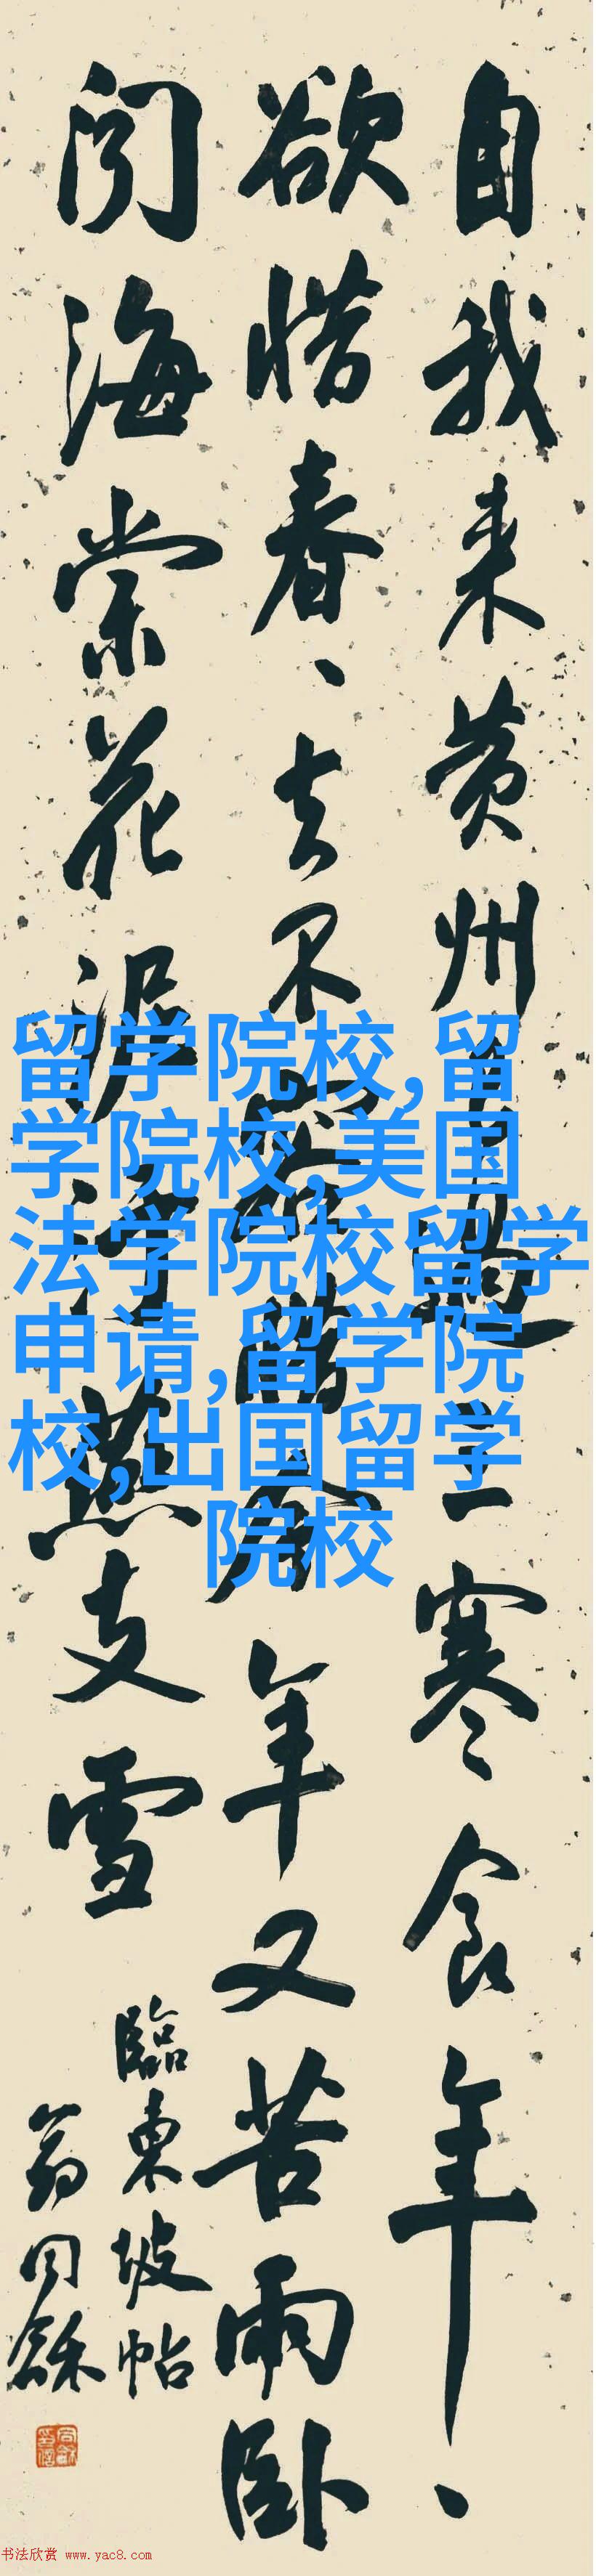 自我来黄州已過三寒食年、
欲惜春、去不容惜今年又苦雨卧
闻海棠花泥污燕支雪
臨東坡帖
翁同龢
留学院校,留
学院校,美国
法学院校留学
申请,留学院
校,出国留学
院校
书法欣赏 www.yac8.com